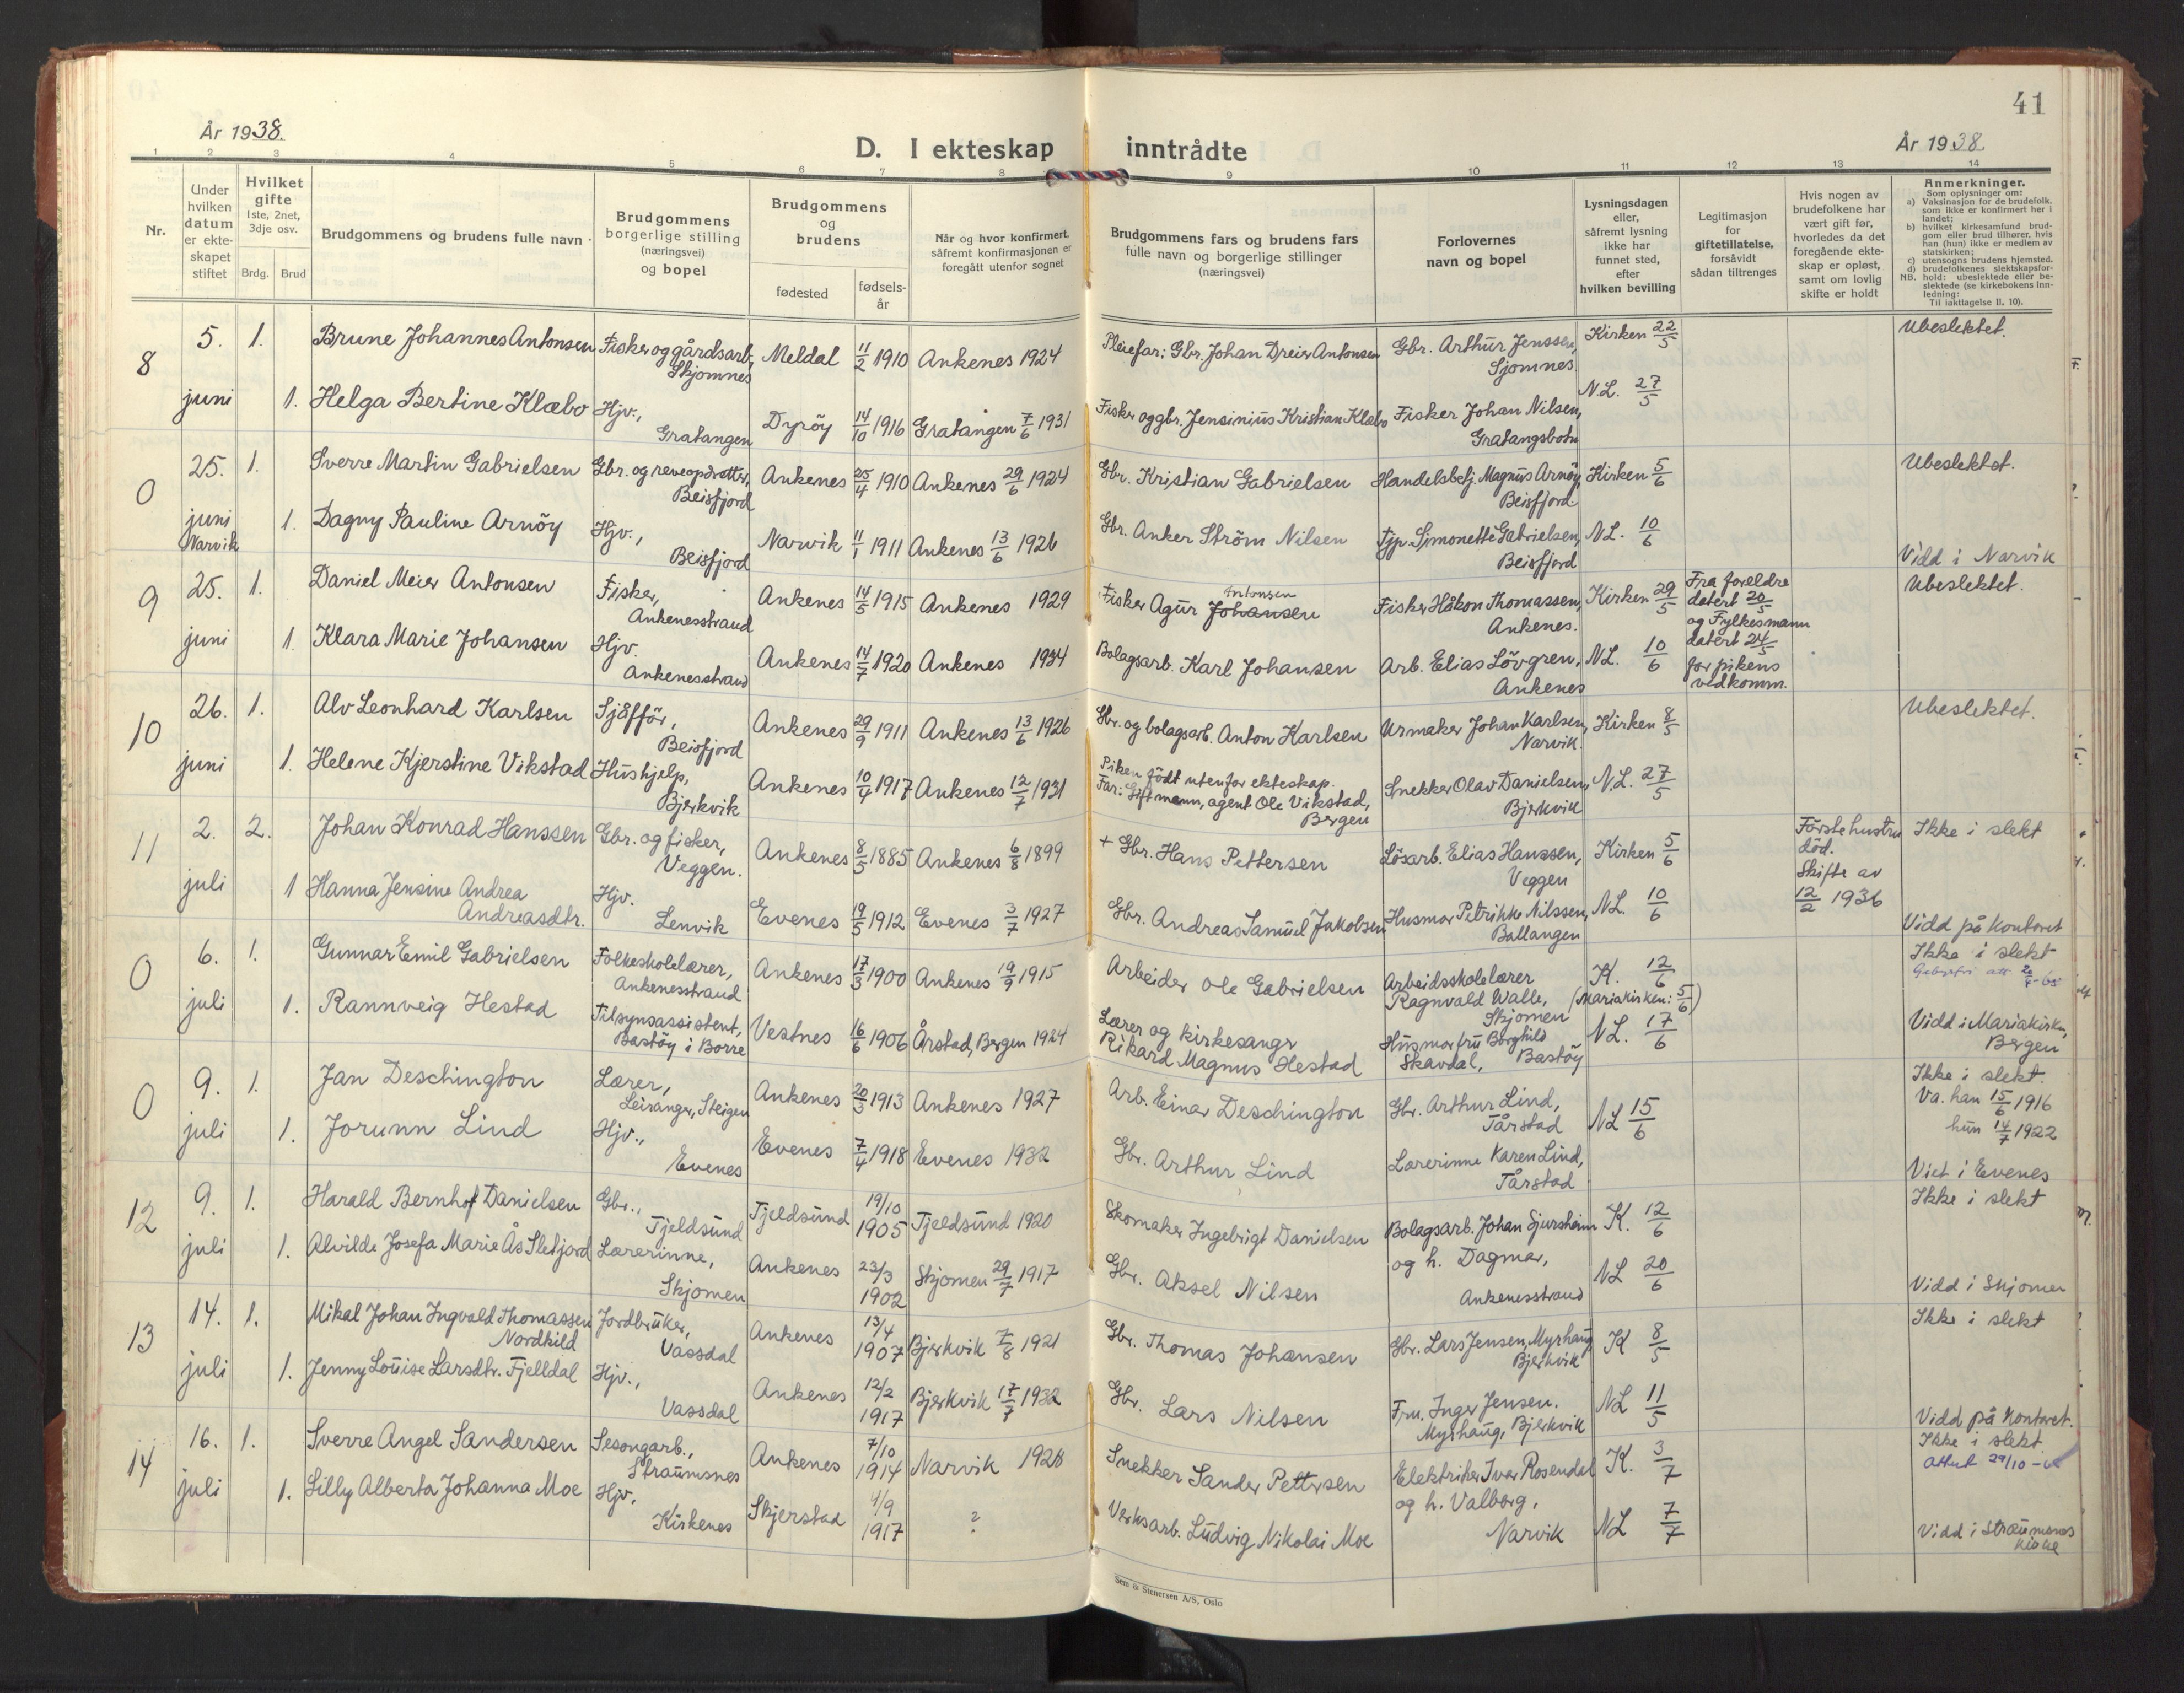 41
År 1938.
D. I ekteskap inntrådte
År 1938
1 2 3 4 5 6 7 8 9 10 11 12 13 14
Nr.
Under hvilken datum er ekteskapet stiftet
Hvilket gifte
1ste, 2net, 3dje osv.
Brdg. Brud
Brudgommens og brudens fulle navn
Brudgommens borgerlige stilling (næringsvei) og bopel
Brudgommens og brudens
fødested
fødselsår
Når og hvor konfirmert, såfremt konfirmasjonen er foregått utenfor sognet
Brudgommens fars og brudens fars fulle navn og borgerlige stillinger (næringsvei)
Forlovernes navn og bopel
Lysningsdagen eller, såfremt lysning ikke har funnet sted, efter hvilken bevilling
Legitimasjon for giftetillatelse, forsåvidt sådan tiltrenges
Hvis nogen av brudefolkene har vært gift før, hvorledes da det foregående ekteskap er opløst, samt om lovlig skifte er holdt
Anmerkninger.
Som oplysninger om:
a) Vaksinasjon for de brudefolk, som ikke er konfirmert her i landet;
b) hvilket kirkesamfund brudgom eller brud tilhører, hvis han (hun) ikke er medlem av statskirken;
c) utensogns brudens hjemsted.
d) brudefolkenes slektskapsforhold: ubeslektede eller beslektede (se kirkebokens innledning:
NB. Til iakttagelse II, 10).
8 5. juni 1. Brune Johannes Antonsen Fisker og gårdsarb., Skjomnes Meldal 11/2 1910 Ankenes 1924 Pleiefar: Gbr. Johan Dreier Antonsen Gbr. Arthur Jenssen, Sjomnes Kirken 22/5 Ubeslektet.
1. Helga Bertine Klæbo Hjv., Gratangen Dyröy 14/10 1916 Gratangen 7/6 1931 Fisker og gbr. Jensinius Kristian Klæbo Fisker Johan Nilsen, Gratangsbotn N.L. 27/5
0 25. juni Narvik 1. Sverre Martin Gabrielsen Gbr. og reveopdretter, Beisfjord Ankenes 25/4 1910 Ankenes 29/6 1924 Gbr. Kristian Gabrielsen Handelsbetj. Magnus Arnöy, Beisfjord Kirken 5/6 Ubeslektet.
1. Dagny Pauline Arnöy Hjv., Beisfjord Narvik 11/1 1911 Ankenes 13/6 1926 Gbr. Anker Ström Nilsen Tjp. Simonette Gabrielsen, Beisfjord N.L. 10/6 Vidd i Narvik
9 25. juni 1. Daniel Meier Antonsen Fisker, Ankenesstrand Ankenes 14/5 1915 Ankenes 1929 Fisker Agur Johansen Antonsen Fisker Håkon Thomassen, Ankenes. Kirken 29/5 Fra foreldre datert 20/5 og Fylkesmann datert 24/5 for pikens vedkomm. Ubeslektet.
1. Klara Marie Johansen Hjv. Ankenesstrand Ankenes 14/7 1920 Ankenes 1934 Bolagsarb. Karl Johansen Arb. Elias Lövgren, Ankenes N.L. 10/6
10 26. juni 1. Alv Leonhard Karlsen Sjåfför, Beisfjord Ankenes 29/9 1911 Ankenes 13/6 1926 Gbr. og bolagsarb. Anton Karlsen Urmaker Johan Karlsen, Narvik. Kirken 8/5 Ubeslektet.
1. Helene Kjerstine Vikstad Hushjelp, Bjerkvik Ankenes 10/4 1917 Ankenes 12/7 1931 Piken födt utenfor ekteskap. Far: Gift mann, agent Ole Vikstad, Bergen Snekker Olav Danielsen, Bjerkvik N.L. 27/5
11 2. juli 2. Johan Konrad Hanssen Gbr. og fisker, Veggen. Ankenes 8/5 1885 Ankenes 6/8 1899 + Gbr. Hans Pettersen Lösarb. Elias Hanssen, Veggen Kirken 5/6 Förste hustru död. Skifte av 12/2 1936 Ikke i slekt
1 Hanna Jensine Andrea Andreasdtr. Hjv. Lenvik Evenes 19/5 1912 Evenes 3/7 1927 Gbr. Andreas Samuel Jakobsen Husmor Petrikke Nilssen, Ballangen N.L. 10/6 Vidd på kontoret
0 6. juli 1. Gunnar Emil Gabrielsen Folkeskolelærer, Ankenesstrand Ankenes 17/3 1900 Ankenes 19/9 1915 Arbeider Ole Gabrielsen Arbeidsskolelærer Ragnvald Walle, Skjomen K. 12/6 (Mariakirken: 5/6) Ikke i slekt
1. Rannveig Hestad Tilsynsassistent, Bastöy i Borre Vestnes 16/6 1906 Årstad, Bergen 1924 Lærer og kirkesanger Rikard Magnus Hestad Husmorfru Borghild Skavdal, Bastöy N.L. 17/6 Vidd i Mariakirken, Bergen
0 9. juli 1. Jan Deschington Lærer, Leiranger, Steigen Ankenes 20/3 1913 Ankenes 1927 Arb. Einar Deschington Gbr. Arthur Lind, Tårstad NL 15/6 Ikke i slekt. Va. han 15/6 1916 hun 14/7 1922
1. Jorunn Lind Hjv., Evenes Evenes 7/4 1918 Evenes 1932 Gbr. Arthur Lind Lærerinne Karen Lind, Tårstad Viet i Evenes
12 9. juli 1. Harald Bernhof Danielsen Gbr., Tjeldsund Tjeldsund 19/10 1905 Tjeldsund 1920 Skomaker Ingebrigt Danielsen Bolagsarb. Johan Sjursheim K. 12/6 Ikke i slekt
1. Alvilde Josefa Marie Ås Sletjord Lærerinne, Skjomen Ankenes 23/3 1902 Skjomen 29/7 1917 Gbr. Aksel Nilsen og h. Dagmar, Ankenesstrand NL 20/6 Vidd i Skjomen
13 14. juli 1. Mikal Johan Ingvald Thomassen Nordkild Jordbruker, Vassdal Ankenes 13/4 1907 Bjerkvik 7/8 1921 Gbr. Thomas Johansen Gbr. Lars Jensen, Myrhaug Bjerkvik K 8/5 Ikke i slekt
1. Jenny Louise Larsdtr. Fjelldal Hjv., Vassdal Ankenes 12/2 1917 Bjerkvik 17/7 1932 Gbr. Lars Nilsen Fru. Inger Jensen. Myrhaug, Bjerkvik NL 11/5 Vidd på kontoret.
14 16. juli 1. Sverre Angel Sandersen Sesongarb., Straumsnes Ankenes 7/10 1914 Narvik 1928 Snekker Sander Pettersen Elektriker Iver Rosendal K. 3/7 Ikke i slekt
1. Lilly Alberta Johanna Moe Hjv, Kirkenes Skjerstad 4/9 1917 ? Verksarb. Ludvig Nikolai Moe og h. Valborg, Narvik NL 7/7 Vidd i Straumsnes kirke
Sem & Stenersen A/S, Oslo